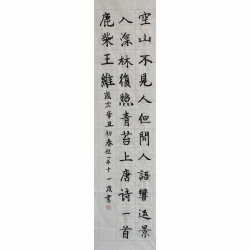 空山不見人但聞人語響返景
入深林復照青苔上唐诗一首
鹿柴王維
歲次辛丑初春 十一歲書